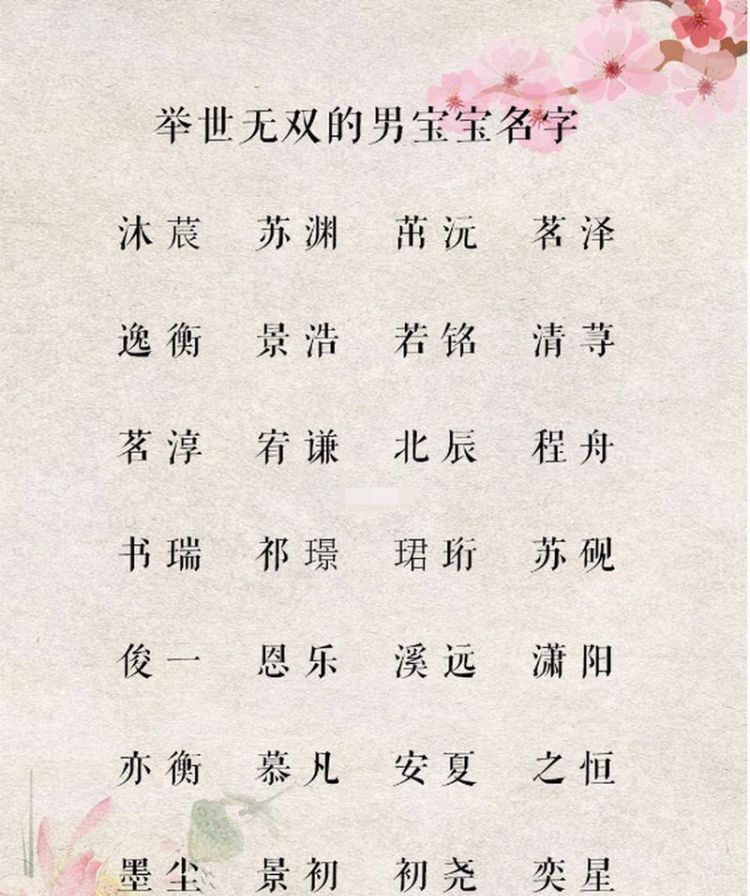 举世无双的男宝宝名字
沐莀 苏渊 茁沅 茗泽
逸衡 景浩 若铭 清荨
茗淳 宥谦 北辰 程舟
书瑞 祁璟 珺珩 苏砚
俊一 恩乐 溪远 潇阳
亦衡 慕凡 安夏 之恒
墨尘 景初 初尧 奕星